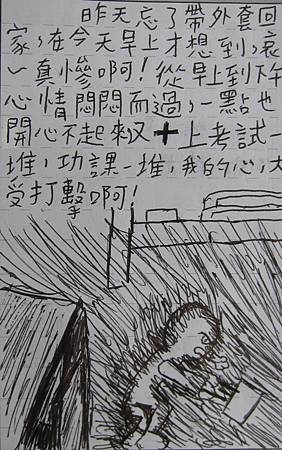 昨天忘了帶外套回
家,在今天早上才想到,哀
~真慘啊!從早上到下午
心情悶悶而過,一點也
開心不起來又+上考試一
堆,功課一堆,我的心,大
受打擊啊!